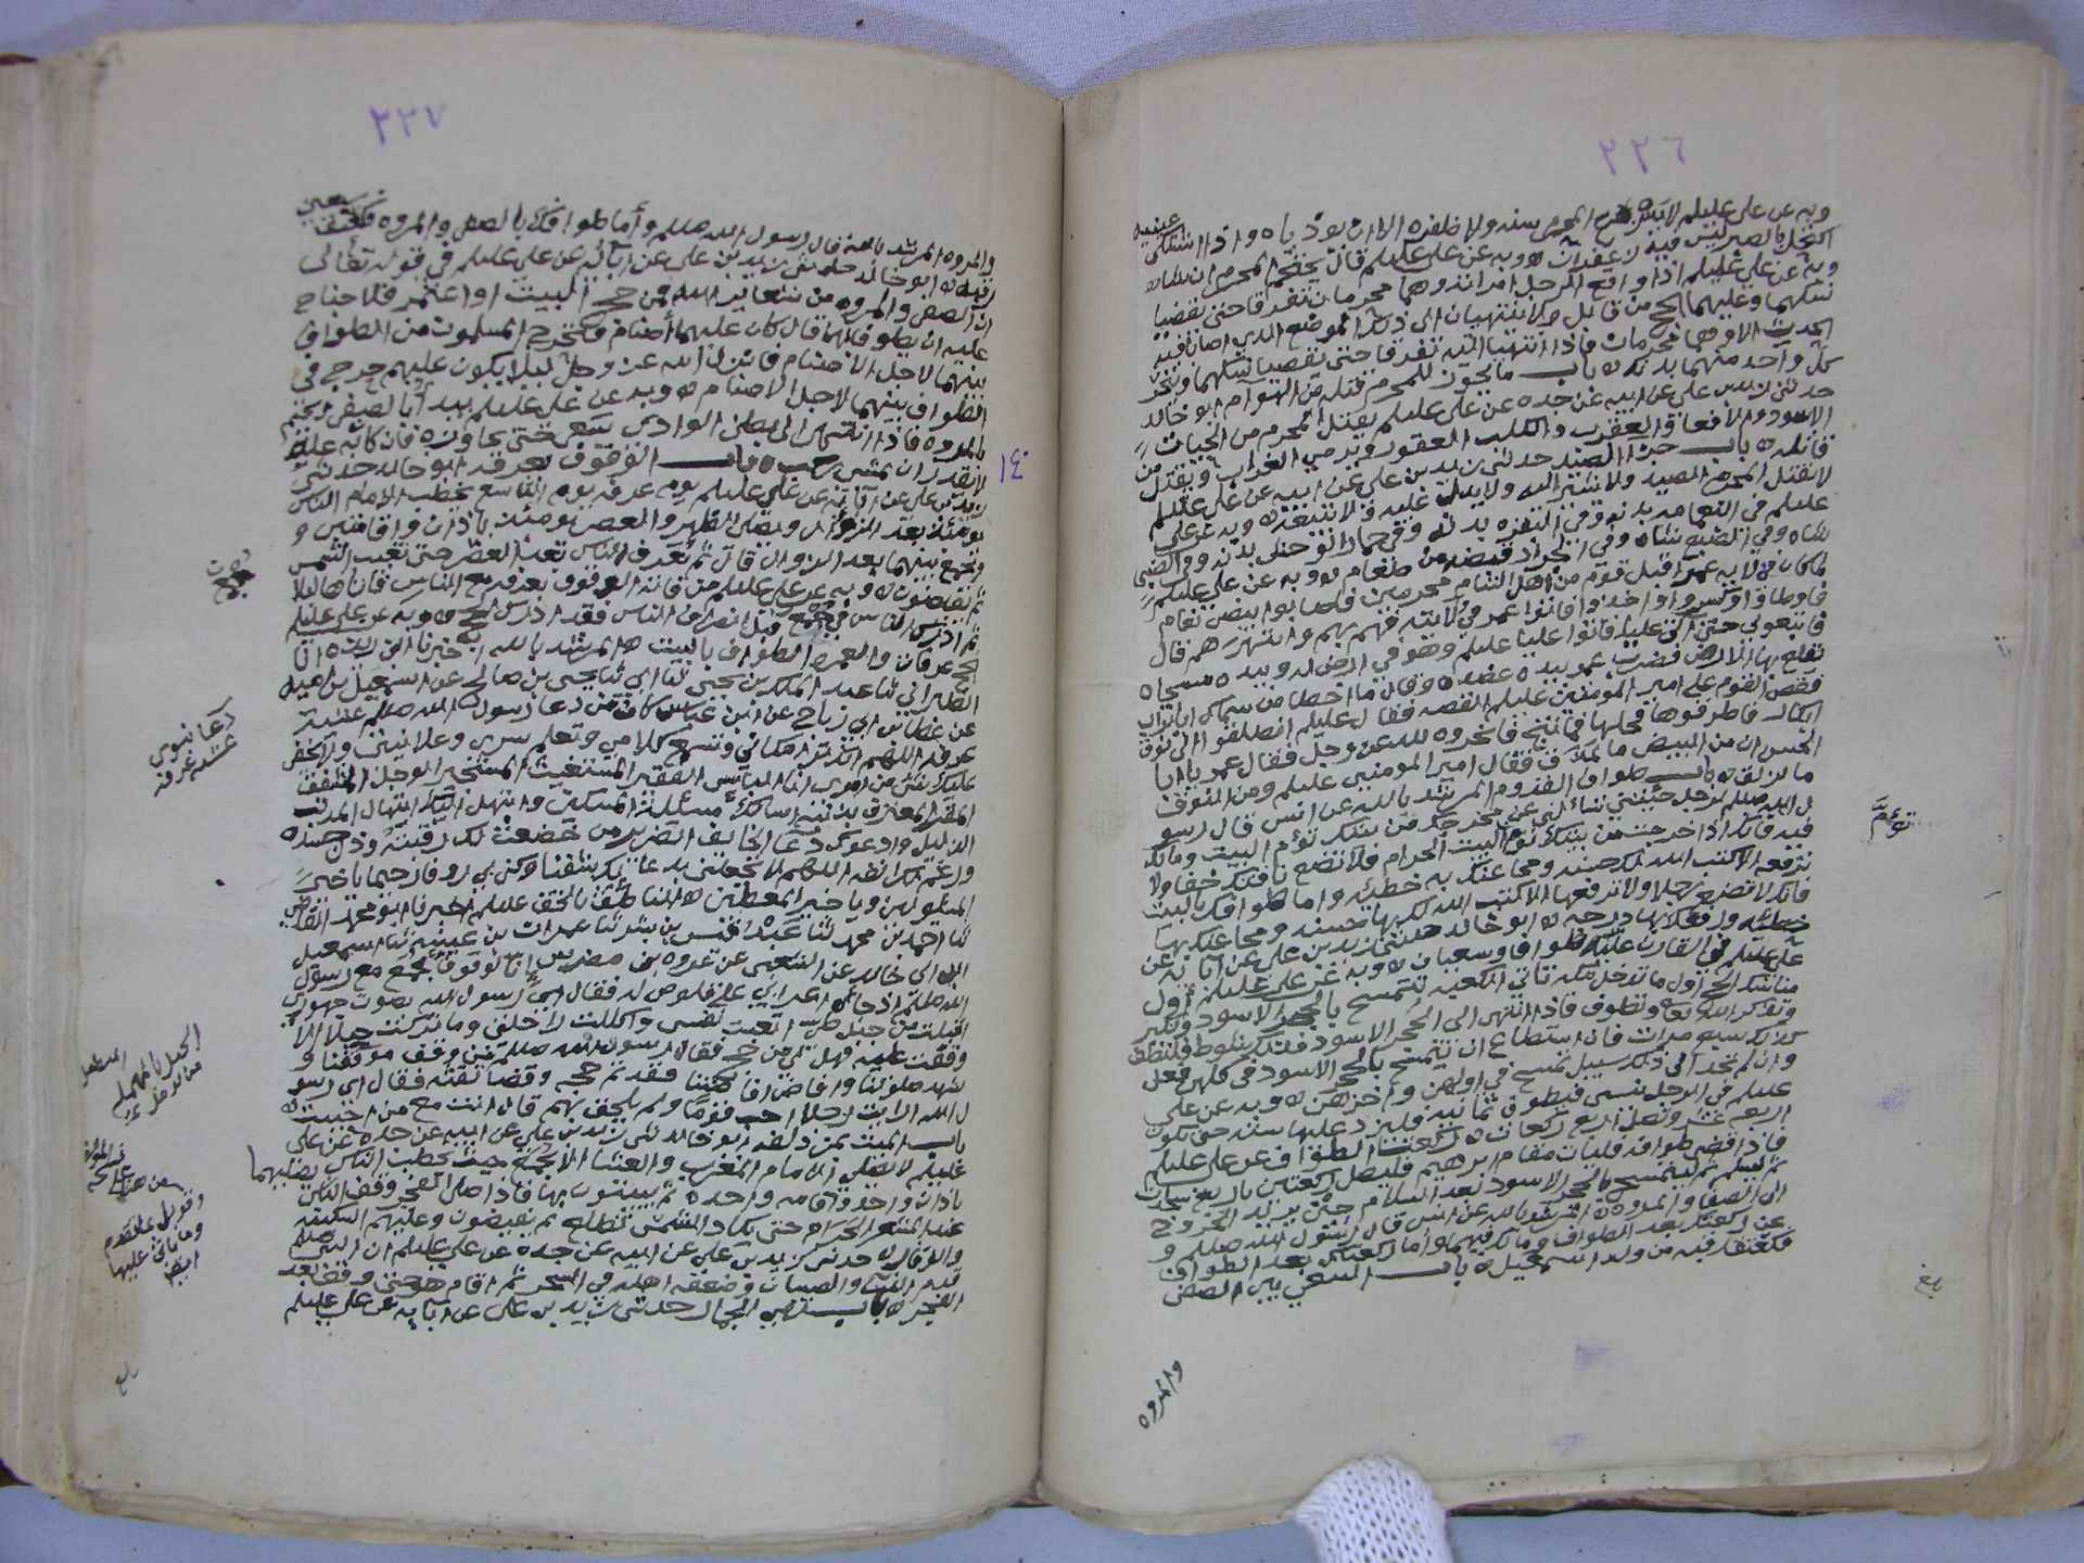 ٢٢٦
وبه عن علي عليلم لا ينزع المحرم سنه ولا ظفره الا ان يوذياه واذا اشتكى عينيه
اكتحل بالصبر ليس فيه زعفران ه وبه عن علي عليلم قال يحتجم المحرم ان شاء ه
وبه عن علي عليلم اذا واقع الرجل امراته وهما محرمان تفرقا حتى يقضيا
نسكهما وعليهما الحج من قابل ولا ينتهيان الى ذلك الموضع الذي اصابا فيه
الحدث الا وهما محرمان فاذا انتهيا اليه تفرقا حتى يقضيا نسكهما وينحر
كل واحد منهما بدنه ه باب ما يجوز للمحرم قتله من الهوآم ابو خالد
حدثني زيد بن علي عن ابيه عن جده عن علي عليلم يقتل المحرم من الحيات
الاسود والافعا والعقرب والكلب العقور ويرمي الغراب ويقتل من
قاتله ه باب جزا الصيد حدثني زيد بن علي عن ابيه عن علي عليلم
لا يقتل المحرم الصيد ولا يشير اليه ولا يدل عليه ولا يتبعه ه وبه عن علي
عليلم في النعامه بدنه وفي البقره بدنه وفي حمار الوحش بدنه وفي الضبي
شاه وفي الضبع شاه وفي الجراد قبضه من طعام ه وبه عن علي عليلم
لما كان في ولاية عمر اقبل قوم من اهل الشام محرمين فاصابوا بيض نعام
فاوطاوا وكسروا واخذوا فاتوا عمر في ولايته فهم بهم وانتهرهم قال
فاتبعوني حتى اتى عليا فاتوا عليا عليلم وهو في ارض له وبيده مسحاه
يقلع بها الارض فضرب عمر بيده عضده وقال ما اخطا من سماك ابا تراب
فقص القوم على امير المؤمنين عليلم القصه فقال عليلم انطلقوا الى نوق
ابكار فاطرقوها فحلها فما نتج فانحروه لله عز وجل فقال عمر يا ابا
الحسن ان من البيض ما يمذق فقال امير المومنين عليلم ومن النوق
ما يزلق ه باب طواف القدوم المرشد بالله عن انس قال رسو
ل الله صللم لرجل جئتني تسألني عن مخرجك من بيتك تؤم البيت وما لك
فيه فانك اذا خرجت من بيتك تؤم البيت الحرام فلا تضع ناقتك خفا ولا
ترفعه الا كتب الله لك حسنه ومحا عنك به خطيئه واما طوافك بالبيت
فانك لا تضع رجلا ولا ترفعها الا كتب الله لك بها حسنه ومحا عنك بها
خطيئه ورفعك بها درجه ه ابو خالد حدثني زيد بن علي عن آبائه عن
علي عليلم في القارن عليه طوافان وسعيان ه وبه عن علي عليلم اول
مناسك الحج اول ما تدخل مكه تاتي الكعبه تتمسح بالحجر الاسود وتكبر
وتذكر الله تعا وتطوف فاذا انتهى الى الحجر الاسود فذلك شوط فليطف
كذلك سبع مرات فان استطاع ان يتمسح بالحجر الاسود في كلهن فعل
وان لم يجد الى ذلك سبيل تمسح في اولهن واخرهن ه وبه عن علي
عليلم في الرجل ينسى فيطوف ثمانيه فليزد عليها سته حتى تكون
اربعه عشر وتصلي اربع ركعات ه ركعتا الطواف عن علي عليلم
فاذا قضى طوافه فليات مقام ابرهيم فليصل ركعتين باربع سجدات
ثم ليسلم ثم ليتمسح بالحجر الاسود بعد السلام حين يريد الخروج
الى الصفا والمروه ه المرشد بالله عن انس قال رسول الله صللم و
عن ركعتيك بعد الطواف وما لك فيهما واما ركعتاك بعد الطواف
فكعتقك رقبه من ولد اسمعيل ه باب السعي بين الصفى
توءمَّ
بلغ
والمروه
٢٢٧
والمروه المرشد بالله قال رسول الله صللم وأما طوافك بالصفى والمروه فكعتق سبعين
رقبه ه ابو خالد حدثني زيد بن علي عن آبائه عن علي عليلم في قوله تعالى
ان الصفى والمروه من شعائر الله فمن حج البيت او اعتمر فلا جناح
عليه ان يطوف بهما قال كان عليهما أصنام فتحرج المسلمون من الطواف
بينهما لاجل الاصنام فانزل الله عز وجل ليلا يكون عليهم حرج في
الطواف بينهما لاجل الاصنام ه وبه عن علي عليلم يبدأ بالصفى ويختم
بالمروه فاذا انتهى الى بطن الوادي سعى حتى يجاوزه فان كانت به علة
لا يقدر ان يمشي ركب ه باب الوقوف بعرفه ابو خالد حدثني
زيد بن علي عن آبائه عن علي عليلم يوم عرفه يوم التاسع يخطب الامام الناس
يومئذ بعد الزوال ويصلي الظهر والعصر يومئذ باذان واقامتين و
يجمع بينهما بعد الزوال قال ثم يعرف الناس بعد العصر حتى تغيب الشمس
ثم يفيضون ه وبه عن علي عليلم من فاته الوقوف بعرفه مع الناس فاتاها ليلا
ثم ادرك الناس في جمع قبل انصراف الناس فقد ادرك الحج ه وبه عن علي عليلم
الحج عرفات والعمره الطواف بالبيت ه المرشد بالله اخبرنا ابن ريذه انا
الطبراني ثنا عبد الملك بن يحيى ثنا ابي ثنا يحيى بن صالح عن اسمعيل بن اميه
عن عطا بن ابي رباح عن ابن عباس كان من دعا رسول الله صللم عشية
عرفه اللهم انك ترا مكاني وتسمع كلامي وتعلم سري وعلانيتي ولا يخفى
عليك شي من امري انا البائس الفقير المستغيث المستجير الوجل المشفق
المقر المعترف بذنبه اسالك مسئلة المسكين وابتهل اليك ابتهال المذنب
الذليل وادعوك دعا الخايف الضرير من خضعت لك رقبته وذل جسده
ورغم لك انفه اللهم لا تجعلني بدعائك شقيا وكن بي رؤفا رحيما يا خير
المسئولين ويا خير المعطين ه الناطق بالحق عليلم اخبرنا ابو محمد القاضي
ثنا احمد بن محمد ثنا عبد القدوس بن بشر ثنا عمران بن عيينه ثنا اسمعيل
ابن ابي خالد عن الشعبي عن عروه بن مضرس انا لوقوف بجمع مع رسول
الله صللم اذ جاء اعرابي على قلوص له فقال ابي رسول الله بصوت جهوري
اقبلت من جبل طي اتعبت نفسي واكللت راحلتي وما تركت حبلا الا
وقفت عليه فهل لي من حج فقال رسول الله صللم من وقف موقفنا و
شهد صلوتنا وافاض افاضتنا فقد تم حجه وقضا تفثه فقال اي رسو
ل الله ارايت رجلا احب قوما ولم يلحق بهم قال انت مع من احببت ه
باب المبيت بمزدلفه ابو خالد ثنى زيد بن علي عن ابيه عن جده عن علي
عليلم لا يصلي الامام المغرب والعشا الا بجمع حيث يخطب الناس يصليهما
باذان واحد واقامه واحده ثم يبيتون بها فاذا صلى الفجر وقف بالناس
عند المشعر الحرام حتى تكاد الشمس تطلع ثم يفيضون وعليهم السكينه
والوقار ه حدثني زيد بن علي عن ابيه عن جده عن علي عليلم ان النبي صللم
قدم النسا والصبيان وضعفه اهله في السحر ثم اقام هو حتى وقف بعد
الفجر ه باب رمي الجمار حدثني زيد بن علي عن آبائه عن علي عليلم
١٤٠
دعا نبوي
عشيه عرفه
الحبل بالمهمله
المستطيل
من الرمل
بلغ